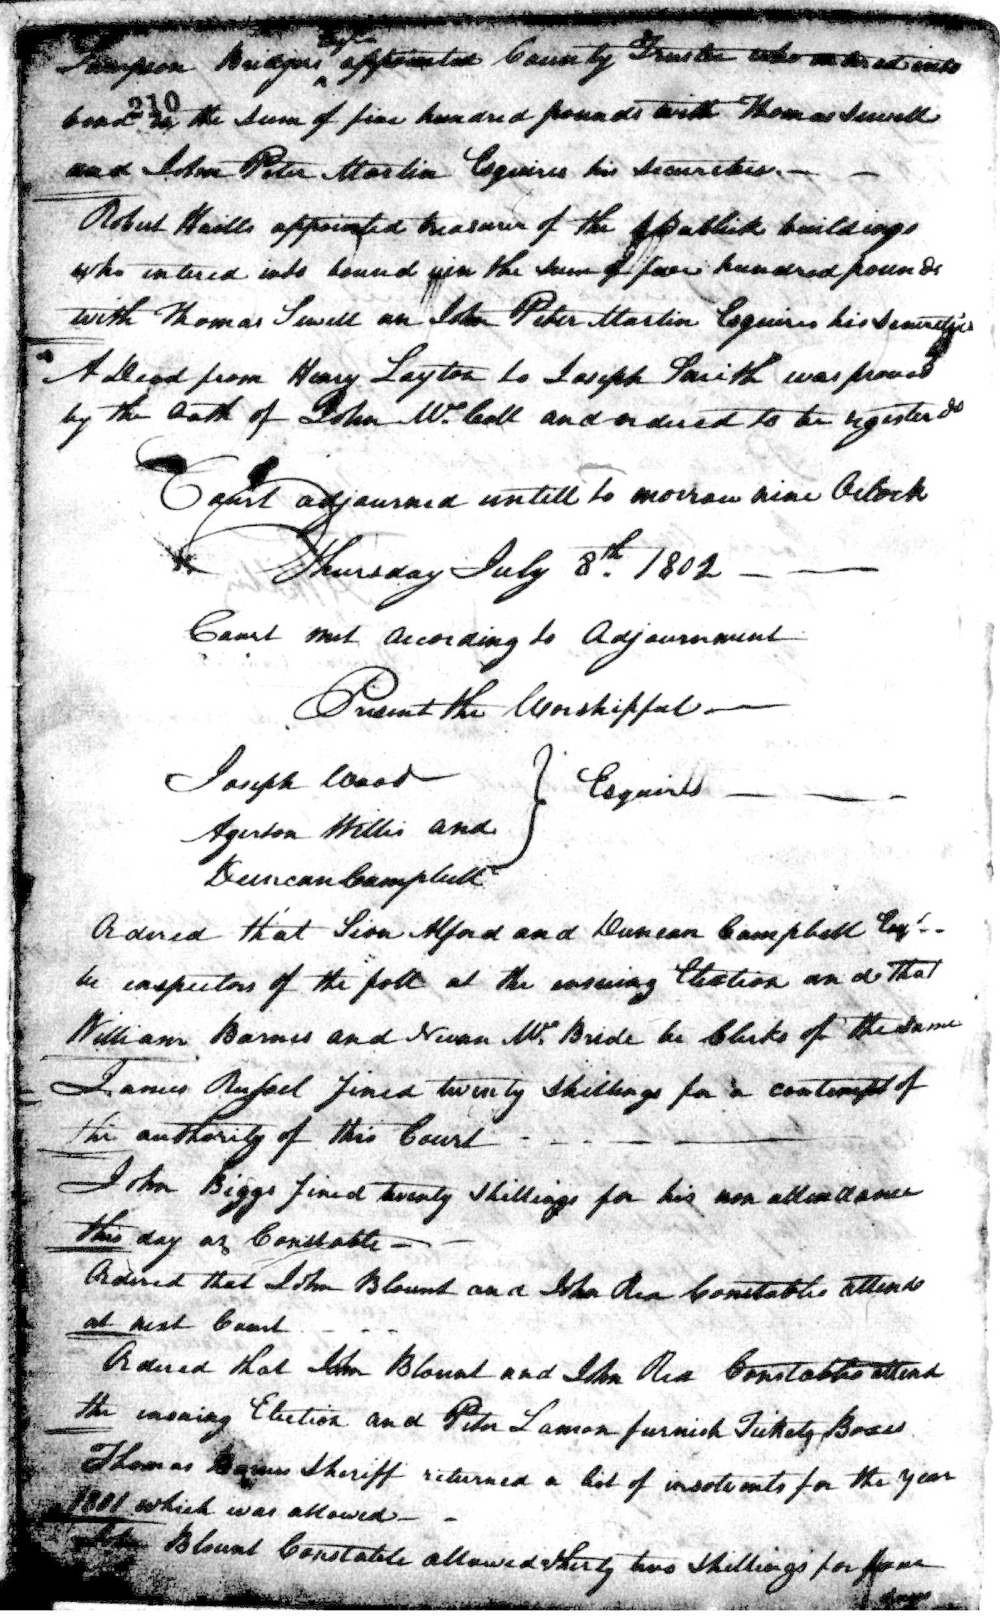 Sampson Bridgers Esqr appointed County Trustee who entered into
210
bond in the sum of five hundred pounds with Thomas Sewell
and John Peter Martin Esquires his securities — —
Robert Haills appointed treasurer of the Publick buildings
who intered into bound in the sum of five hundred pounds
with Thomas Sewell an John Peter Martin Esquires his securities
A Deed from Henry Layton to Joseph Smith was proved
by the oath of John Mc Coll and ordered to be registered
Court adjourned untill to morrow nine Oclock
Thursday July 8th. 1802 — —
Court met according to Adjournment
Present the Worshipful —
Joseph Wood
Agerton Willis and
Duncan Campbell
Esquires — — -
Ordered that Sion Alford and Duncan Campbell Esqr. -
be inspectors of the poll at the ensuing Election and that
William Barnes and Nivan Mc Bride be Clerks of the same
James Russel fined twenty shillings for a contempt of
the authority of this Court - - - — —
John Biggs fined twenty shillings for his non attendance
this day as Constable — -
Ordered that John Blount and John Rea Constables attend
at next Court - - -
Ordered that John Blount and John Rea Constables attend
the ensuing Election and Peter Lamon furnish Tickety Boxes
Thomas Barnes Sheriff returned a list of insolvents for the year
1801 which was allowed — -
John Blount Constable allowed thirty two shillings for four
days